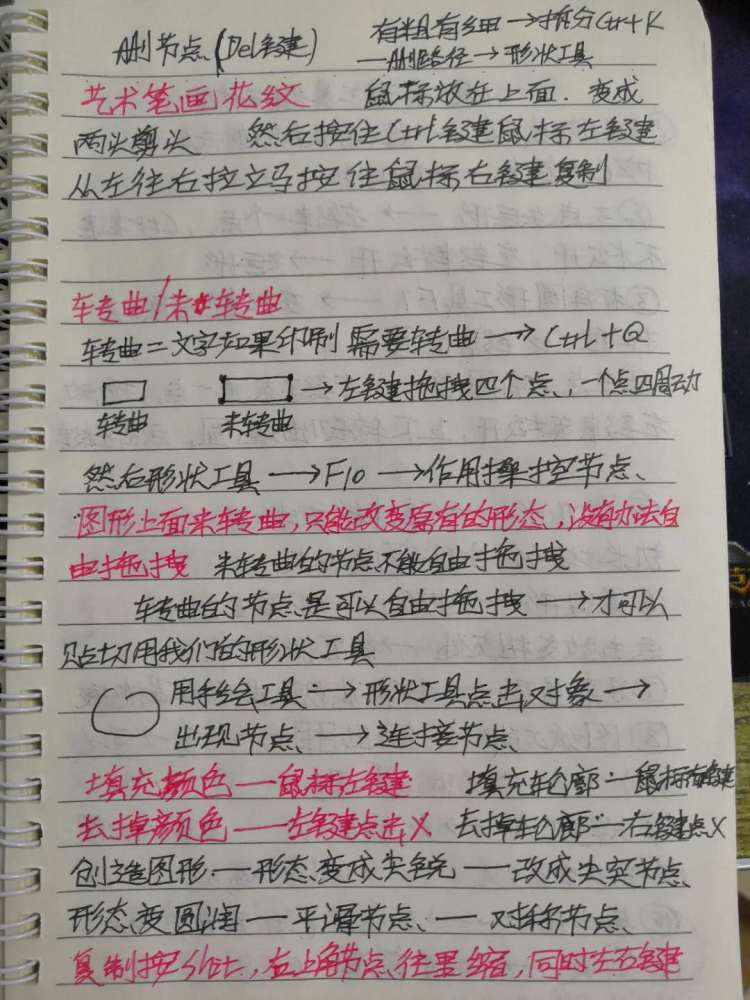 删节点(Del键) 有粗有细→拆分Ctrl+K
一删路径→形状工具
艺术笔画花纹 鼠标放在上面.变成
两头剪头 然后按住Ctrl键鼠标左键
从左往右拉立马按住鼠标右键复制
转曲/未转曲
转曲=文字如果印刷需要转曲→Ctrl+Q
→左键拖拽四个点、一个点四周动
转曲 未转曲
然后形状工具→F10→作用操控节点、
图形上面未转曲,只能改变原有的形态,没有办法自
由拖拽 未转曲的节点不能自由拖拽
转曲的节点是可以自由拖拽→才可以
贴切用我们的形状工具
用手绘工具→形状工具点击对象→
出现节点、→连接节点、
填充颜色一鼠标左键 填充轮廓一鼠标右键
去掉颜色一左键点击X 去掉轮廓一右键点X
创造图形一形态变成尖锐一改成尖突节点、
形态变圆润一平滑节点、一对称节点、
复制按shift,右上角节点往里缩,同时左右键